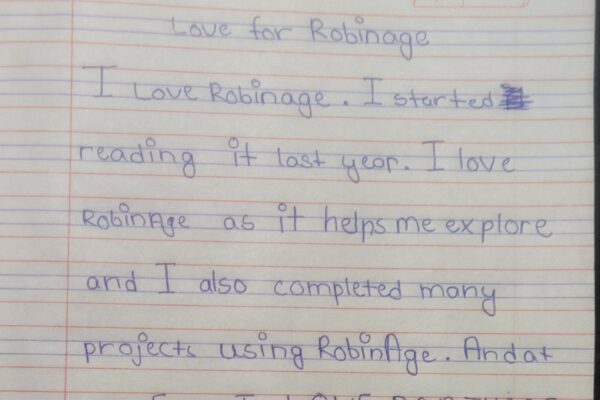 Love for Robinage
I Love Robinage. I started
reading it last year. I love
RobinAge as it helps me explore
and I also completed many
projects using RobinAge. And at